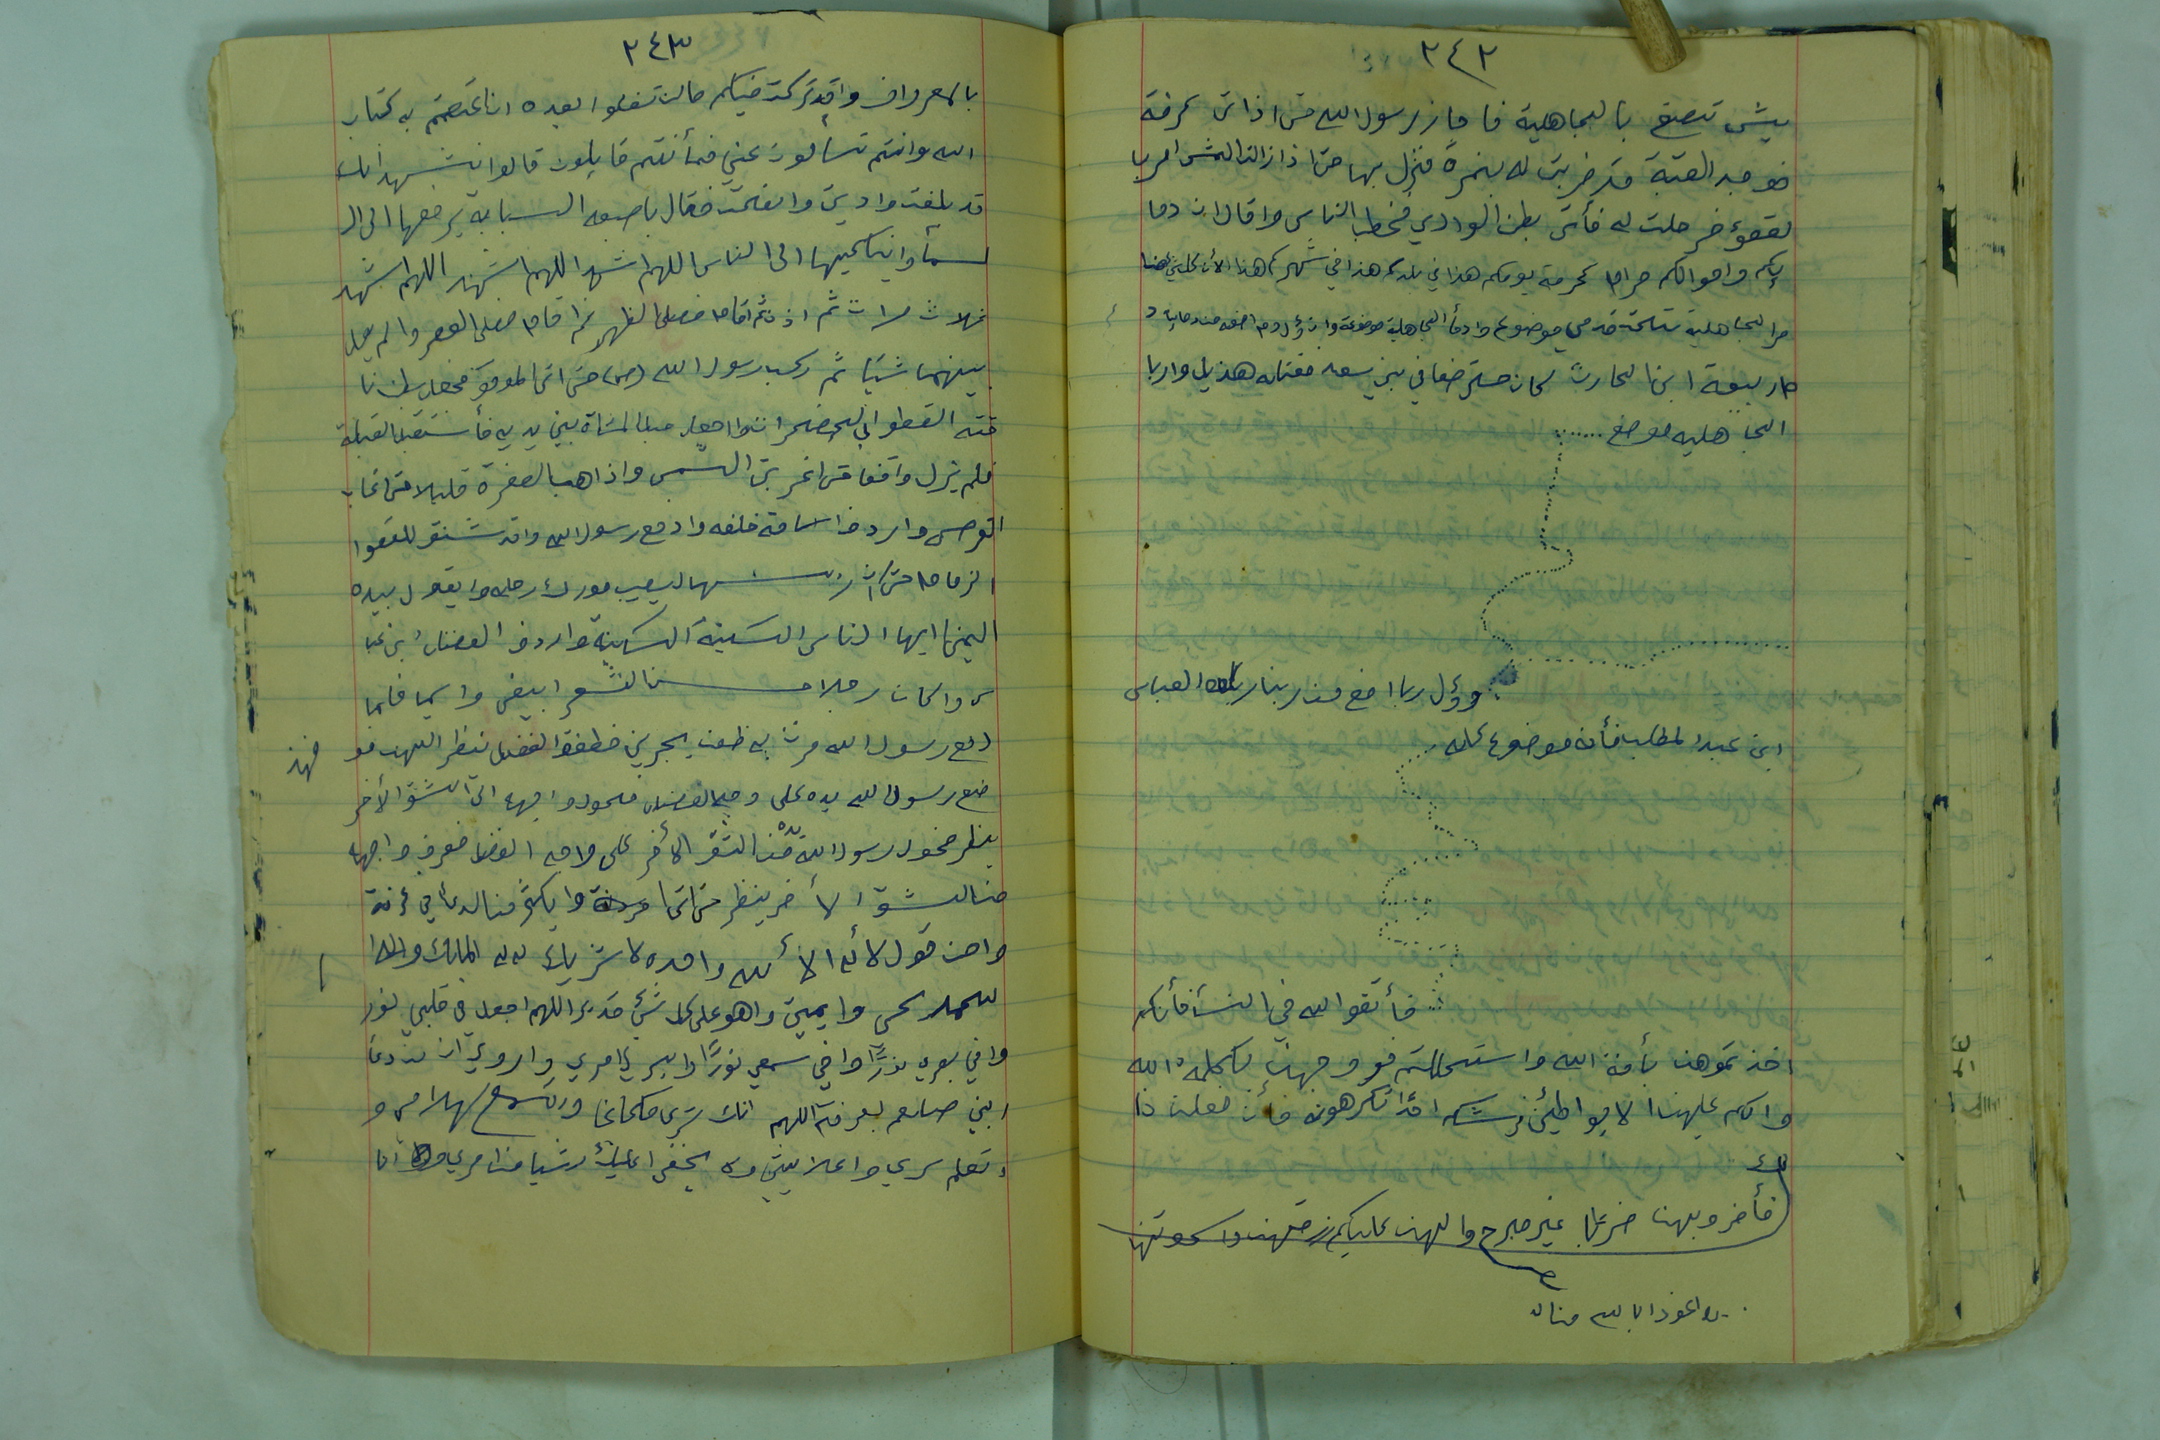 ٢٤٢
يش تصنع بالجاهلية فا جاز رسول الله حتى اذا اتى عرفة
فو جد القبة قد ضربت له بنمرة فنزل بها حتى اذا زالت الشمس امر با
لقصوء فر حلت له فأتى بطن الوادي فخطب الناس وا قال ان دما
ئكم واموالكم حرام كحرمة يومكم هذا في بلدكم هذا في شهركم هذا الأن كل شيئ
مرا لجاهلية تحت قد مي موضوع وا دماأ الجاهلية موضوعة وا ن أول دم اضعه من دماينا د
م ربيعة ابن الحارث كان مسترضعا في بني سعد فقتله هذيل وا ربا
الجاهليه موضع ......
وؤل ربا اضع من ربنا ربا العباس
ابن عبد المطلب فأنه موضوع كله
فأتقوا الله في النسأ فأنكم
اخذ تموهن بأمنة الله وا ستحللتم فرو جهن بكلمة الله
وا لكم عليهن ا لا يوا طيئن فرشكم احدًا تكرهونه فأن فعلن ذا
لك
فأ ضر وبهن ضربًا غير مبرح وا لهن عليكم رزقهن وا كسوتهن
وا عوذ ابا لله منا له
٢٤٣
با المعرواف وا قد تركت فيكم ما لن تضلوا بعده ان اعتصمتم به كتاب
الله وانتم تسألون عني فمأ نتم قا يلون قا لوا نشهد انك
قد بلغت وا ديت وا نصحت فقال با صبعه السبابة يرفعها الى ال
سمأ وا ينكتها الى الناس اللهم اشهد اللهم اشهد اللهم اشهد
ثلاث مرات ثم اذن ثم اقام فصلى الظهر ثم ا قام فصلى العصر وا لم يصل
بينهما شيًا ثم ركب رسول الله (ص) حتى اتى الموقف فجعل بطن نا
قته القصوا الى الصخرات وا جعل حبل المشاة بين يديه فأ ستقبل القبلة
فلم يزل واقفا حتى ا غربت الشمس وا ذا هب الصفرة قليلا حتى غاب
القرص وا ردف ا سامة خلفه وا دفع رسول الله وا قد شنق للقصوا
الزمام حتى ا ن ر سها ليصيب مورك رحله وا يقول بيده
اليمنى ايها ا لناس السكينة السكينة وا ردف الفضل ابن عبا
س وا كان رجلا حسن الشعر ابيض وا سيما فلما
دفع رسول الله مرت به ظعن يجرين فطفق الفضل ينظر اليهن فو
ضع رسول الله يده على وجه الفضل فحول وا جهه الى الشق الأخر
ينظر فحول رسول الله يده من الشق الأخر على وجه الفضل فصرف وا جهه
من الشق ا لأ خر ينظر حتى اتى وا يكثر من الدعا في عرفة
وا من قول لا أله ا لا ألله وا حده لا شريك له له الملك وا له ا
لحمد يحي وا يميت وا هو على كل شئ قد ير اللهم اجعل في قلبي نور
وا في بصري نورًا وا في سمعي نورًا وا يسر لي امري وا روي ان من دعأ
النبي صلعم بعرفة اللهم انك ترى مكاني وا تسمع كلامي و
ا تعلم سري وا علا نيتي ولا يخفى عليك شيا من امري انا